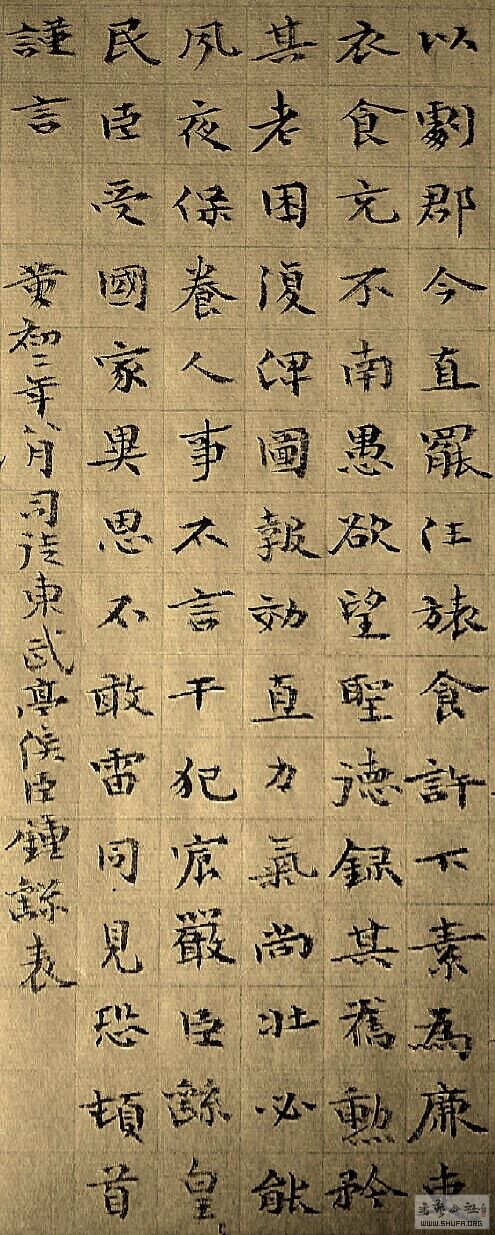 以劇郡今直罷任旅食許下素為廉吏
衣食充不南愚欲望聖德録其舊勲矜
其老困復俾圖報効直力氣尚壯必能
夙夜保養人事不言干犯宸嚴臣繇皇
民臣受國家異思不敢雷同見恐頓首
謹言 黃初二年八月司徒東武亭侯臣鍾繇表
书艺公社
WWW.SHUFA.ORG